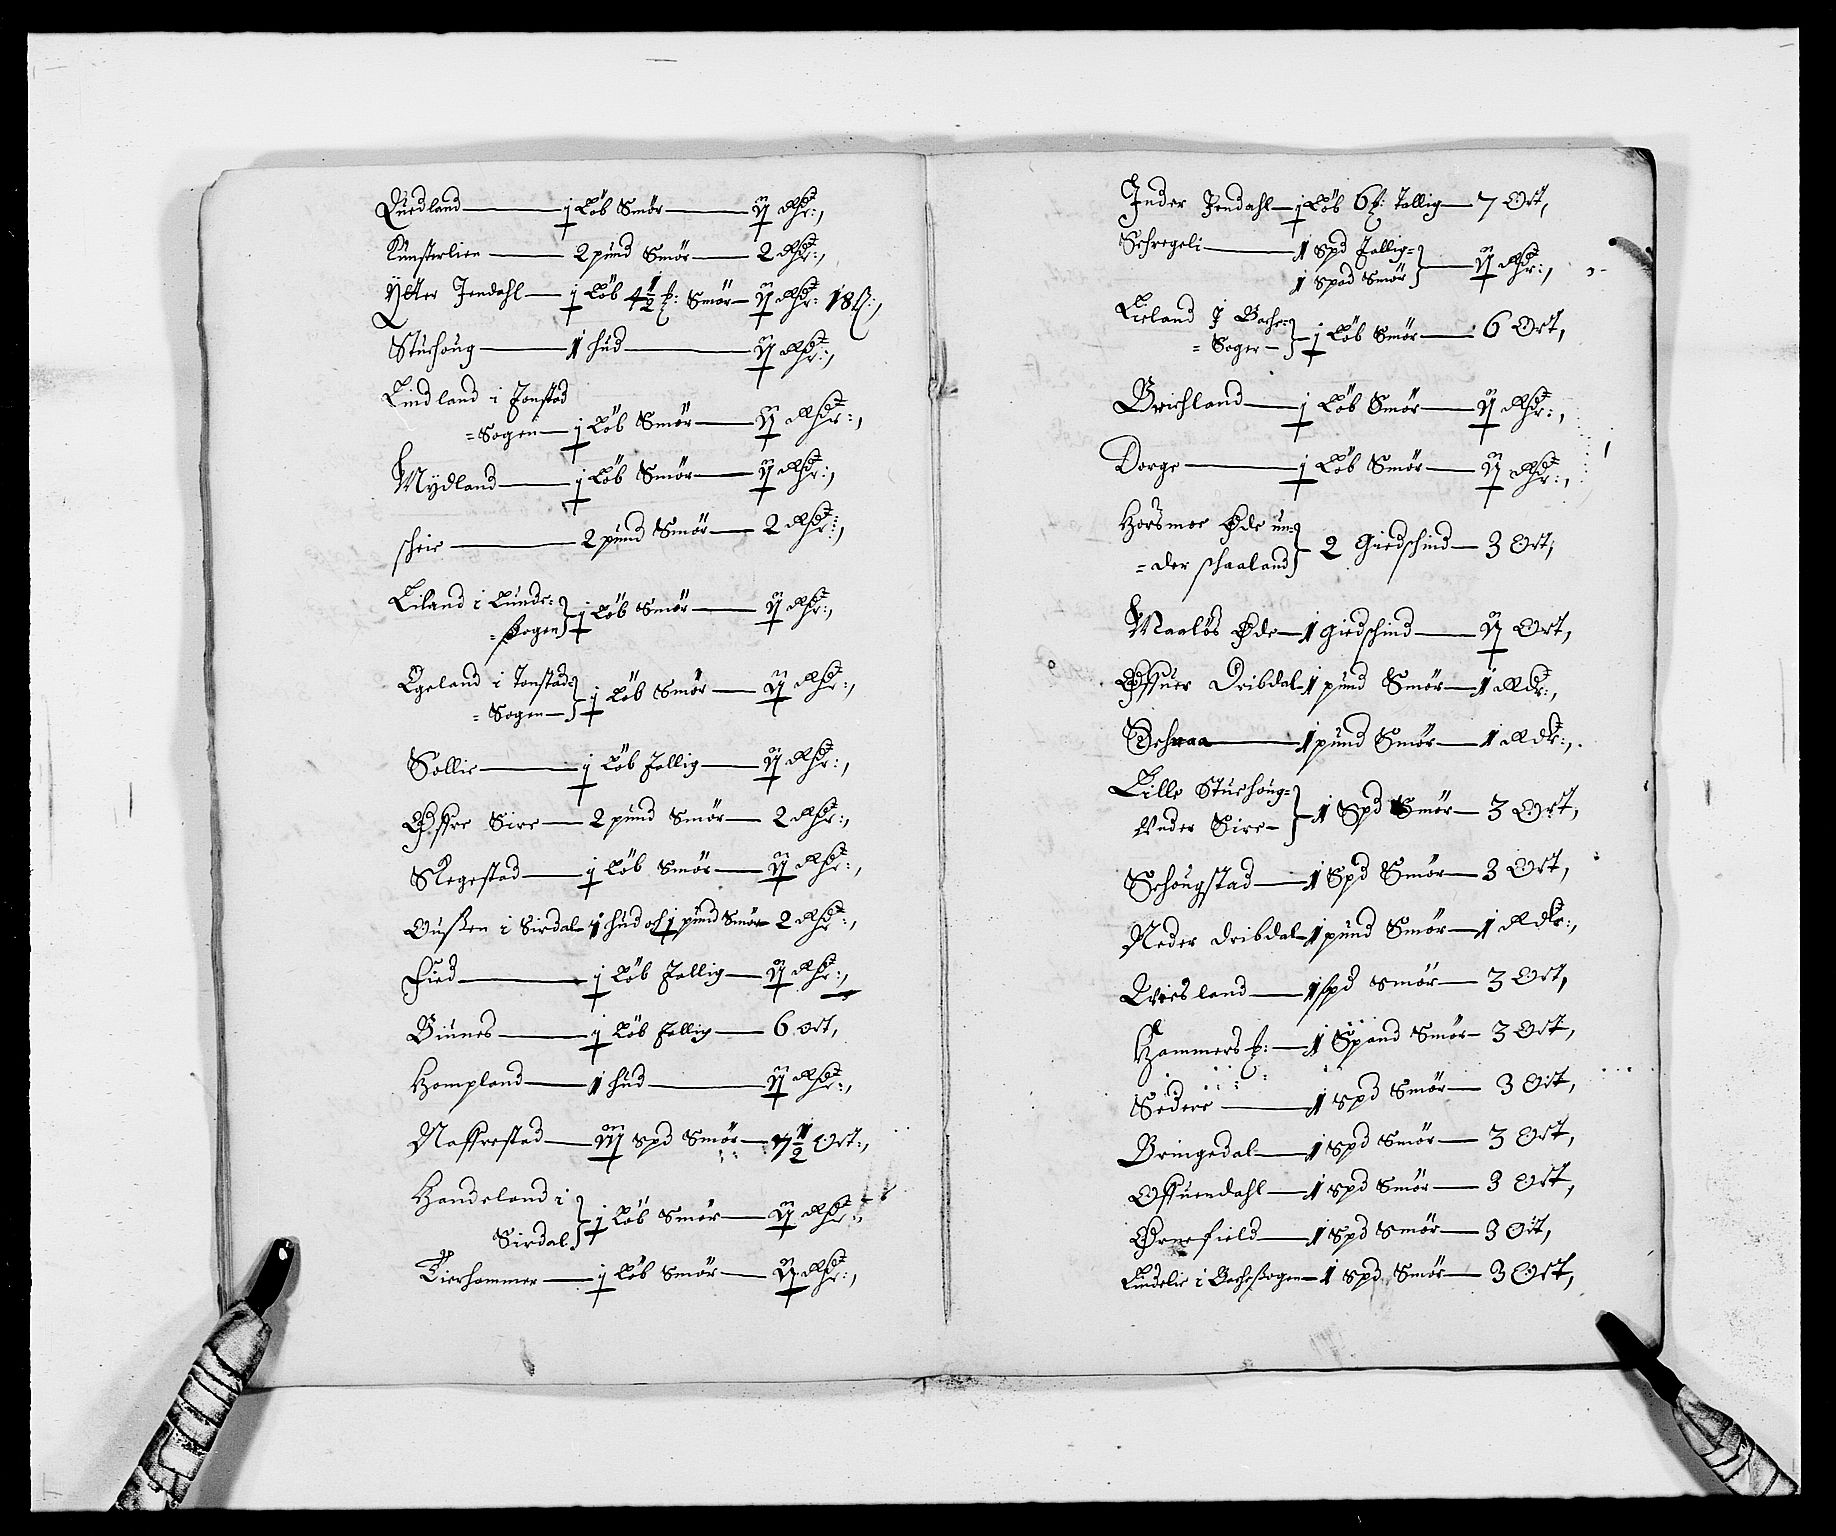 Quedland — j Løb Smør — ij Rdr:,
Kunsterlien — 2 pund Smør — 2 Rdr:,
Ytter Jendahl — j Løb 4½ : Smør — ij Rdr: 18 ß:,
Sturhoug — 1 hud — ij Rdr:,
Lindland i Tonstad
= Sogen — j Løb Smør — ij Rdr:,
Mydland — j Løb Smør — ij Rdr:,
scheie — 2 pund Smør — 2 Rdr:,
Eiland i Lunde=
= Sogen } j Løb Smør — ij Rdr:,
Egeland i Tonstad=
= Sogen — } j Løb Smør — ij Rdr:,
Sollie — j Løb Tallig — ij Rdr:,
Øffre Sire — 2 pund Smør — 2 Rdr:,
Regestad — j Løb Smør — ij Rdr:,
Oußen i Sirdal 1 hud och 1 pund Smør 2 Rdr:,
Fied — j Løb Tallig — ij Rdr:,
Guines — j Løb Tallig — 6 ort,
Hompland — 1 hud — ij Rdr:,
Naffrestad — iij spd Smør — 7½ Ort:,
Handeland i
Sirdal } j Løb Smør — ij Rdr:,
Tierhommer — j Løb Smør — ij Rdr:,
Inder Jendahl — j Løb 6 : Tallig — 7 Ort,
Schregeli — 1 spd Tallig=
1 spad Smør } — ij Rdr:,
Lieland i Bache=
= Soger — } j Løb Smør — 6 Ort,
Birchland — j Løb Smør — ij Rdr:,
Dorge — j Løb Smør — ij Rdr:,
Horsmoe Øde un=
= der schaaland } 2 Giedschind — 3 Ort,
Maaløs Øde — 1 giedschind — ij Ort,
Øffuer Dribdal 1 pund Smør — 1 Rdr:,
— 1 pund Smør — 1 Rdr:,
Lille Sturhoug=
Under Sire — } 1 Spd Smør — 3 Ort,
Schougstad — 1 Spd Smør — 3 Ort,
Neder dribdal 1 pund Smør — 1 Rdr:,
Viesland — 1 spd smør — 3 Ort,
Hammers : — 1 Spand Smør — 3 Ort,
Sædere — 1 spd Smør — 3 Ort,
Bringedal — 1 spd Smør — 3 Ort,
Offuendahl — 1 spd Smør — 3 Ort,
Ørnefield — 1 spd smør — 3 Ort,
Lindelie i Bachesogen — 1 spd Smør — 3 Ort,